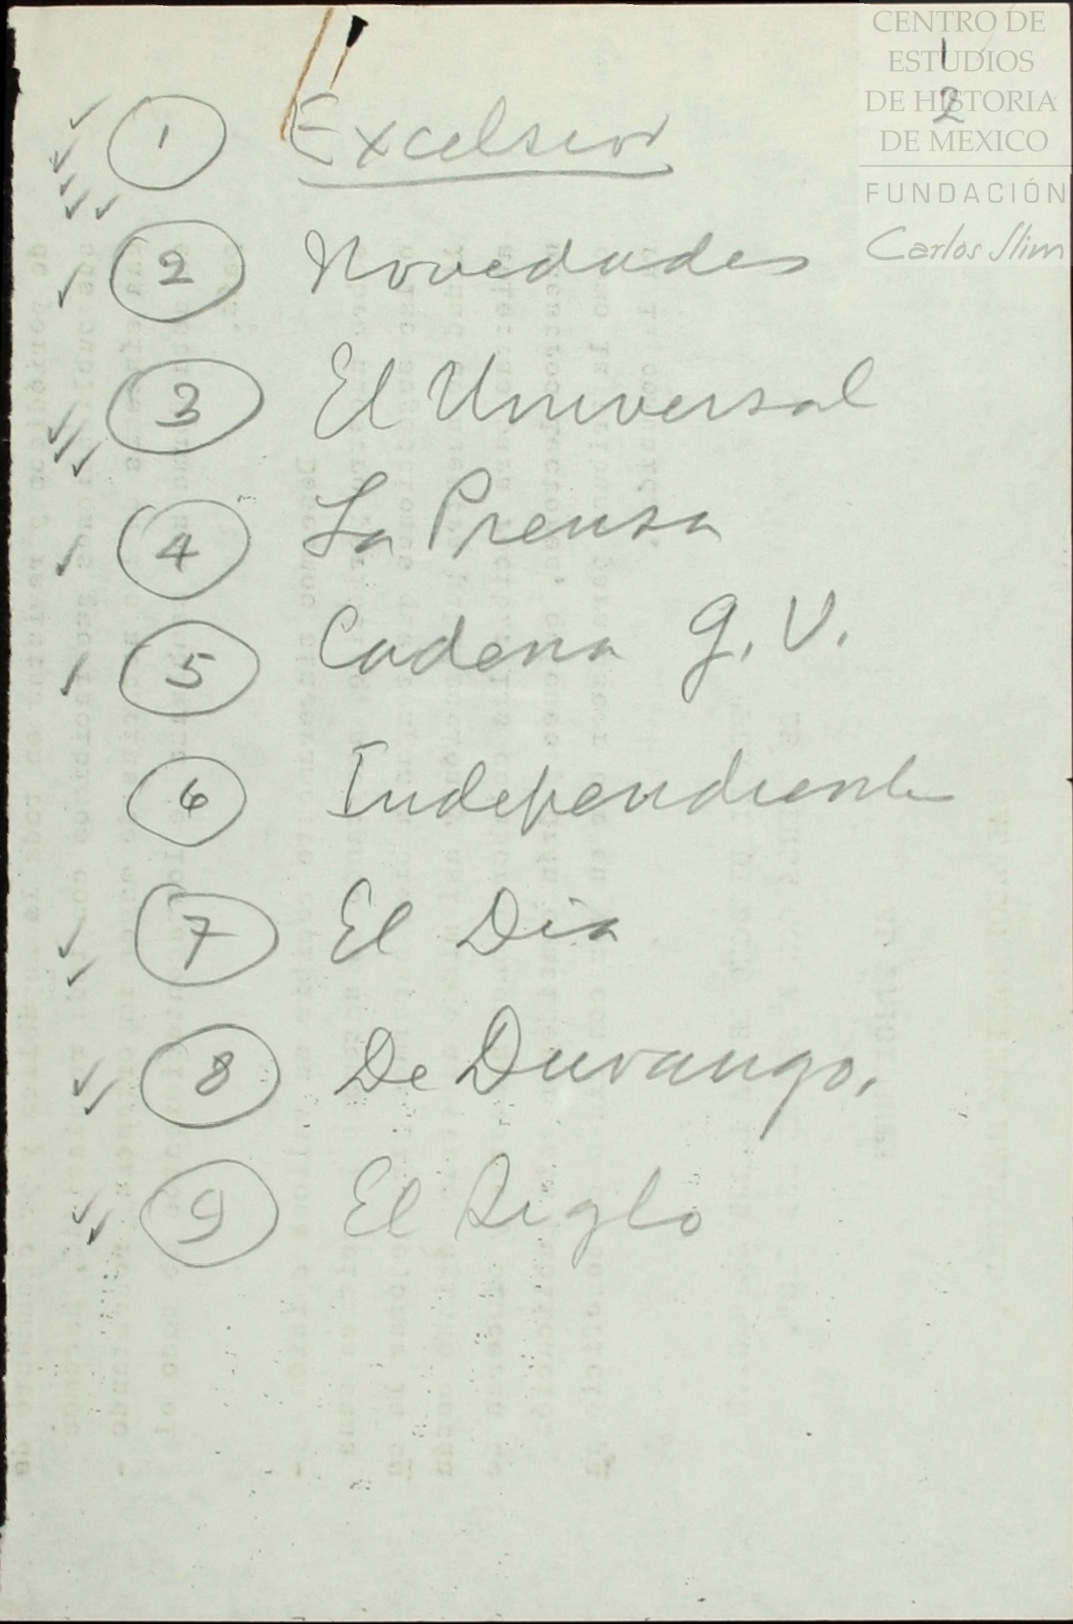 CENTRO DE
ESTUDIOS
DE HISTORIA
DE MEXICO
FUNDACIÓN
Carlos Slim
1
2
1 Excelsior
2 Novedades
3 El Universal
4 La Prensa
5 Cadena G. V.
6 Independiente
7 El Dia
8 De Durango.
9 El Siglo